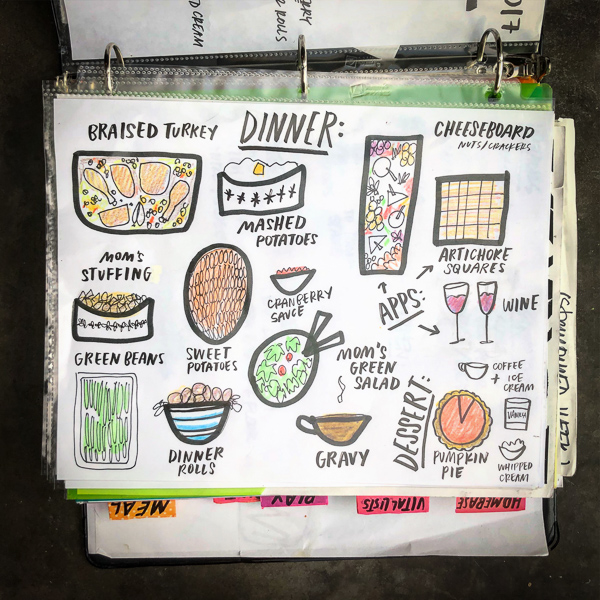 D CREAM
E ROLLS
BRAISED TURKEY
DINNER:
CHEESEBOARD
NUTS/CRACKERS
MASHED
POTATOES
ARTICHOKE
SQUARES
MOM'S
STUFFING
CRANBERRY
SAUCE
APPS:
WINE
GREEN BEANS
SWEET
POTATOES
MOM'S
GREEN
SALAD
COFFEE
+ ICE
CREAM
DESSERT:
DINNER
ROLLS
GRAVY
PUMPKIN
PIE
WHIPPED
CREAM
MEAL
PLAY
VITAL LISTS
HOMEBASE